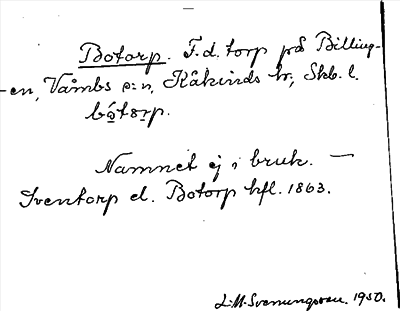 Botorp. F.d. torp på Billing-
-en, Våmbs s:n, Kåkinds hr, Skb. l.
bótorp.
Namnet ej i bruk. —
Sventorp el. Botorp hfl. 1863.
L.M. Svenungsson. 1930.